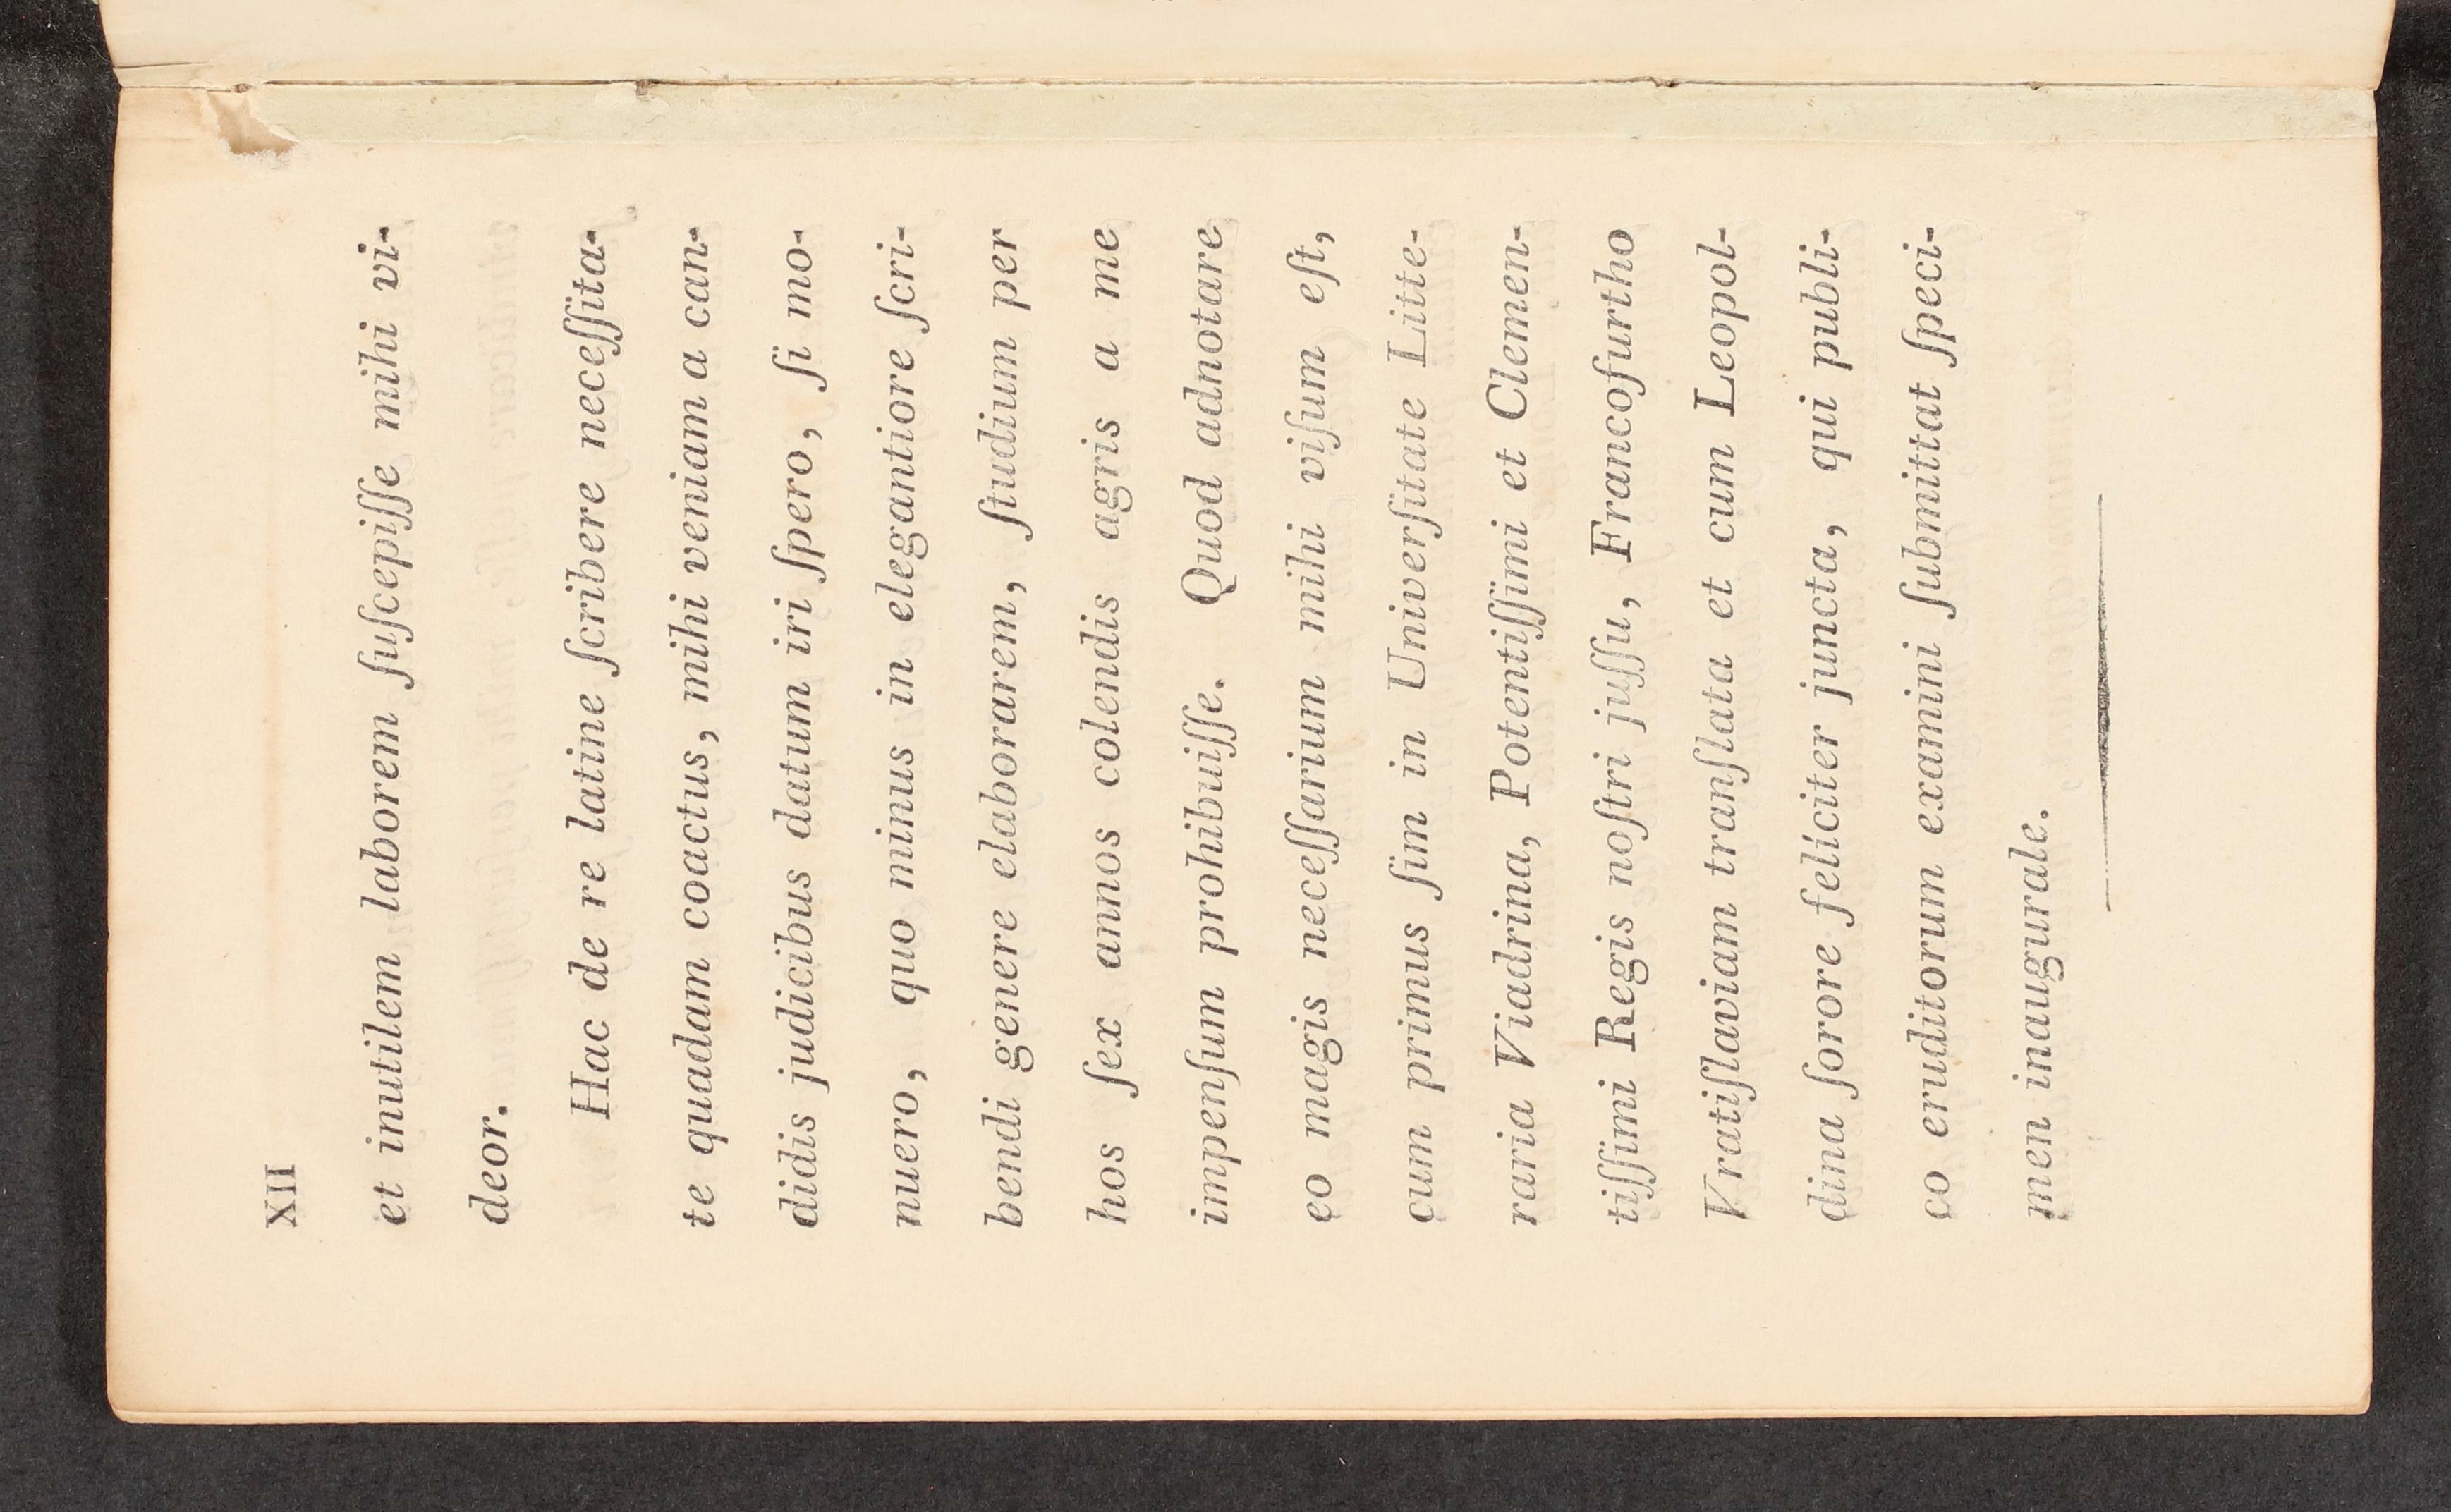 XII
et inutilem laborem ſuſcepiſſe mihi vi-
deor.
Hac de re latine ſcribere neceſſita-
te quadam coactus, mihi veniam a can-
didis judicibus datum iri ſpero, ſi mo-
nuero, quo minus in elegantiore ſcri-
bendi genere elaborarem, ſtudium per
hos ſex annos colendis agris a me
impenſum prohibuiſſe. Quod adnotare
eo magis neceſſarium mihi viſum eſt,
cum primus ſim in Univerſitate Litte-
raria Viadrina, Potentiſſimi et Clemen-
tiſſimi Regis noſtri juſſu, Francofurtho
Vratiſlaviam tranſlata et cum Leopol-
dina ſorore feliciter juncta, qui publi-
co eruditorum examini ſubmittat ſpeci-
men inaugurale.